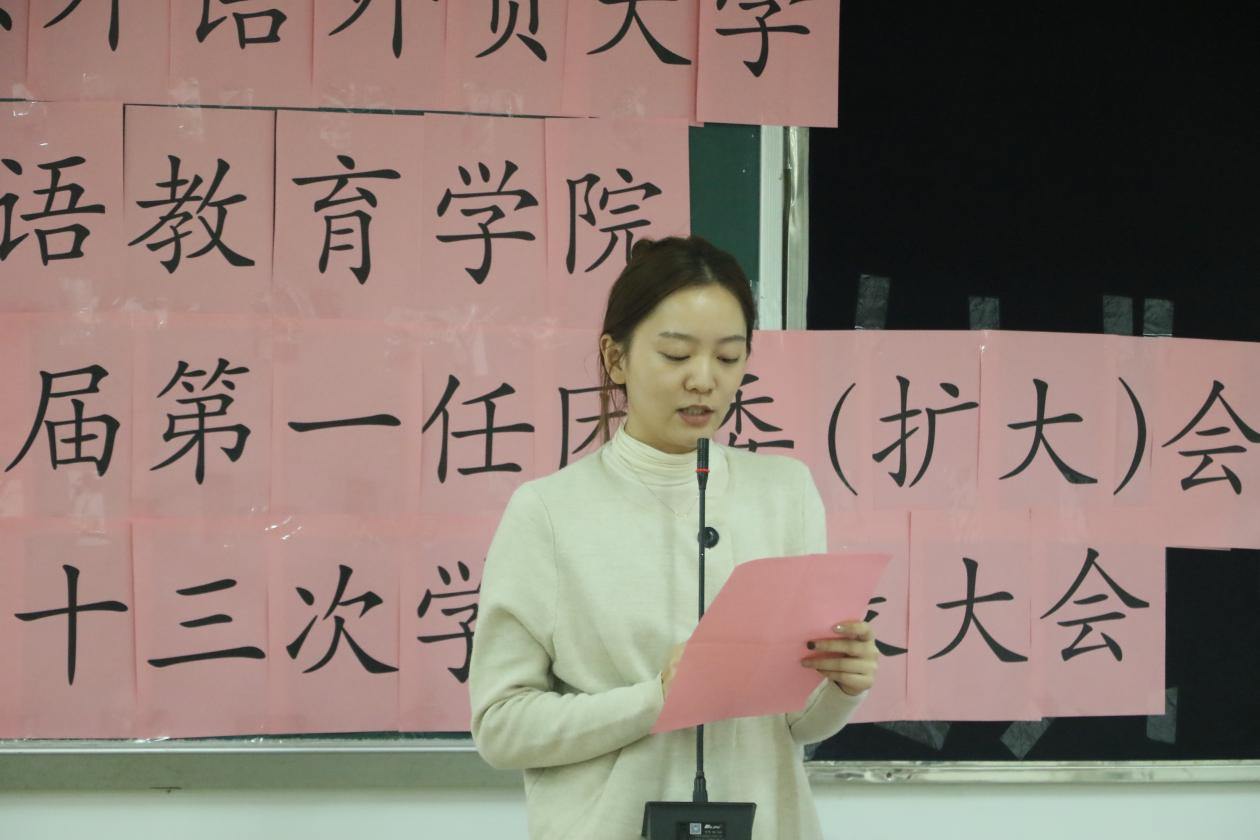 外语外贸大学
语教育学院
届第一任团委(扩大)会
十三次学大会